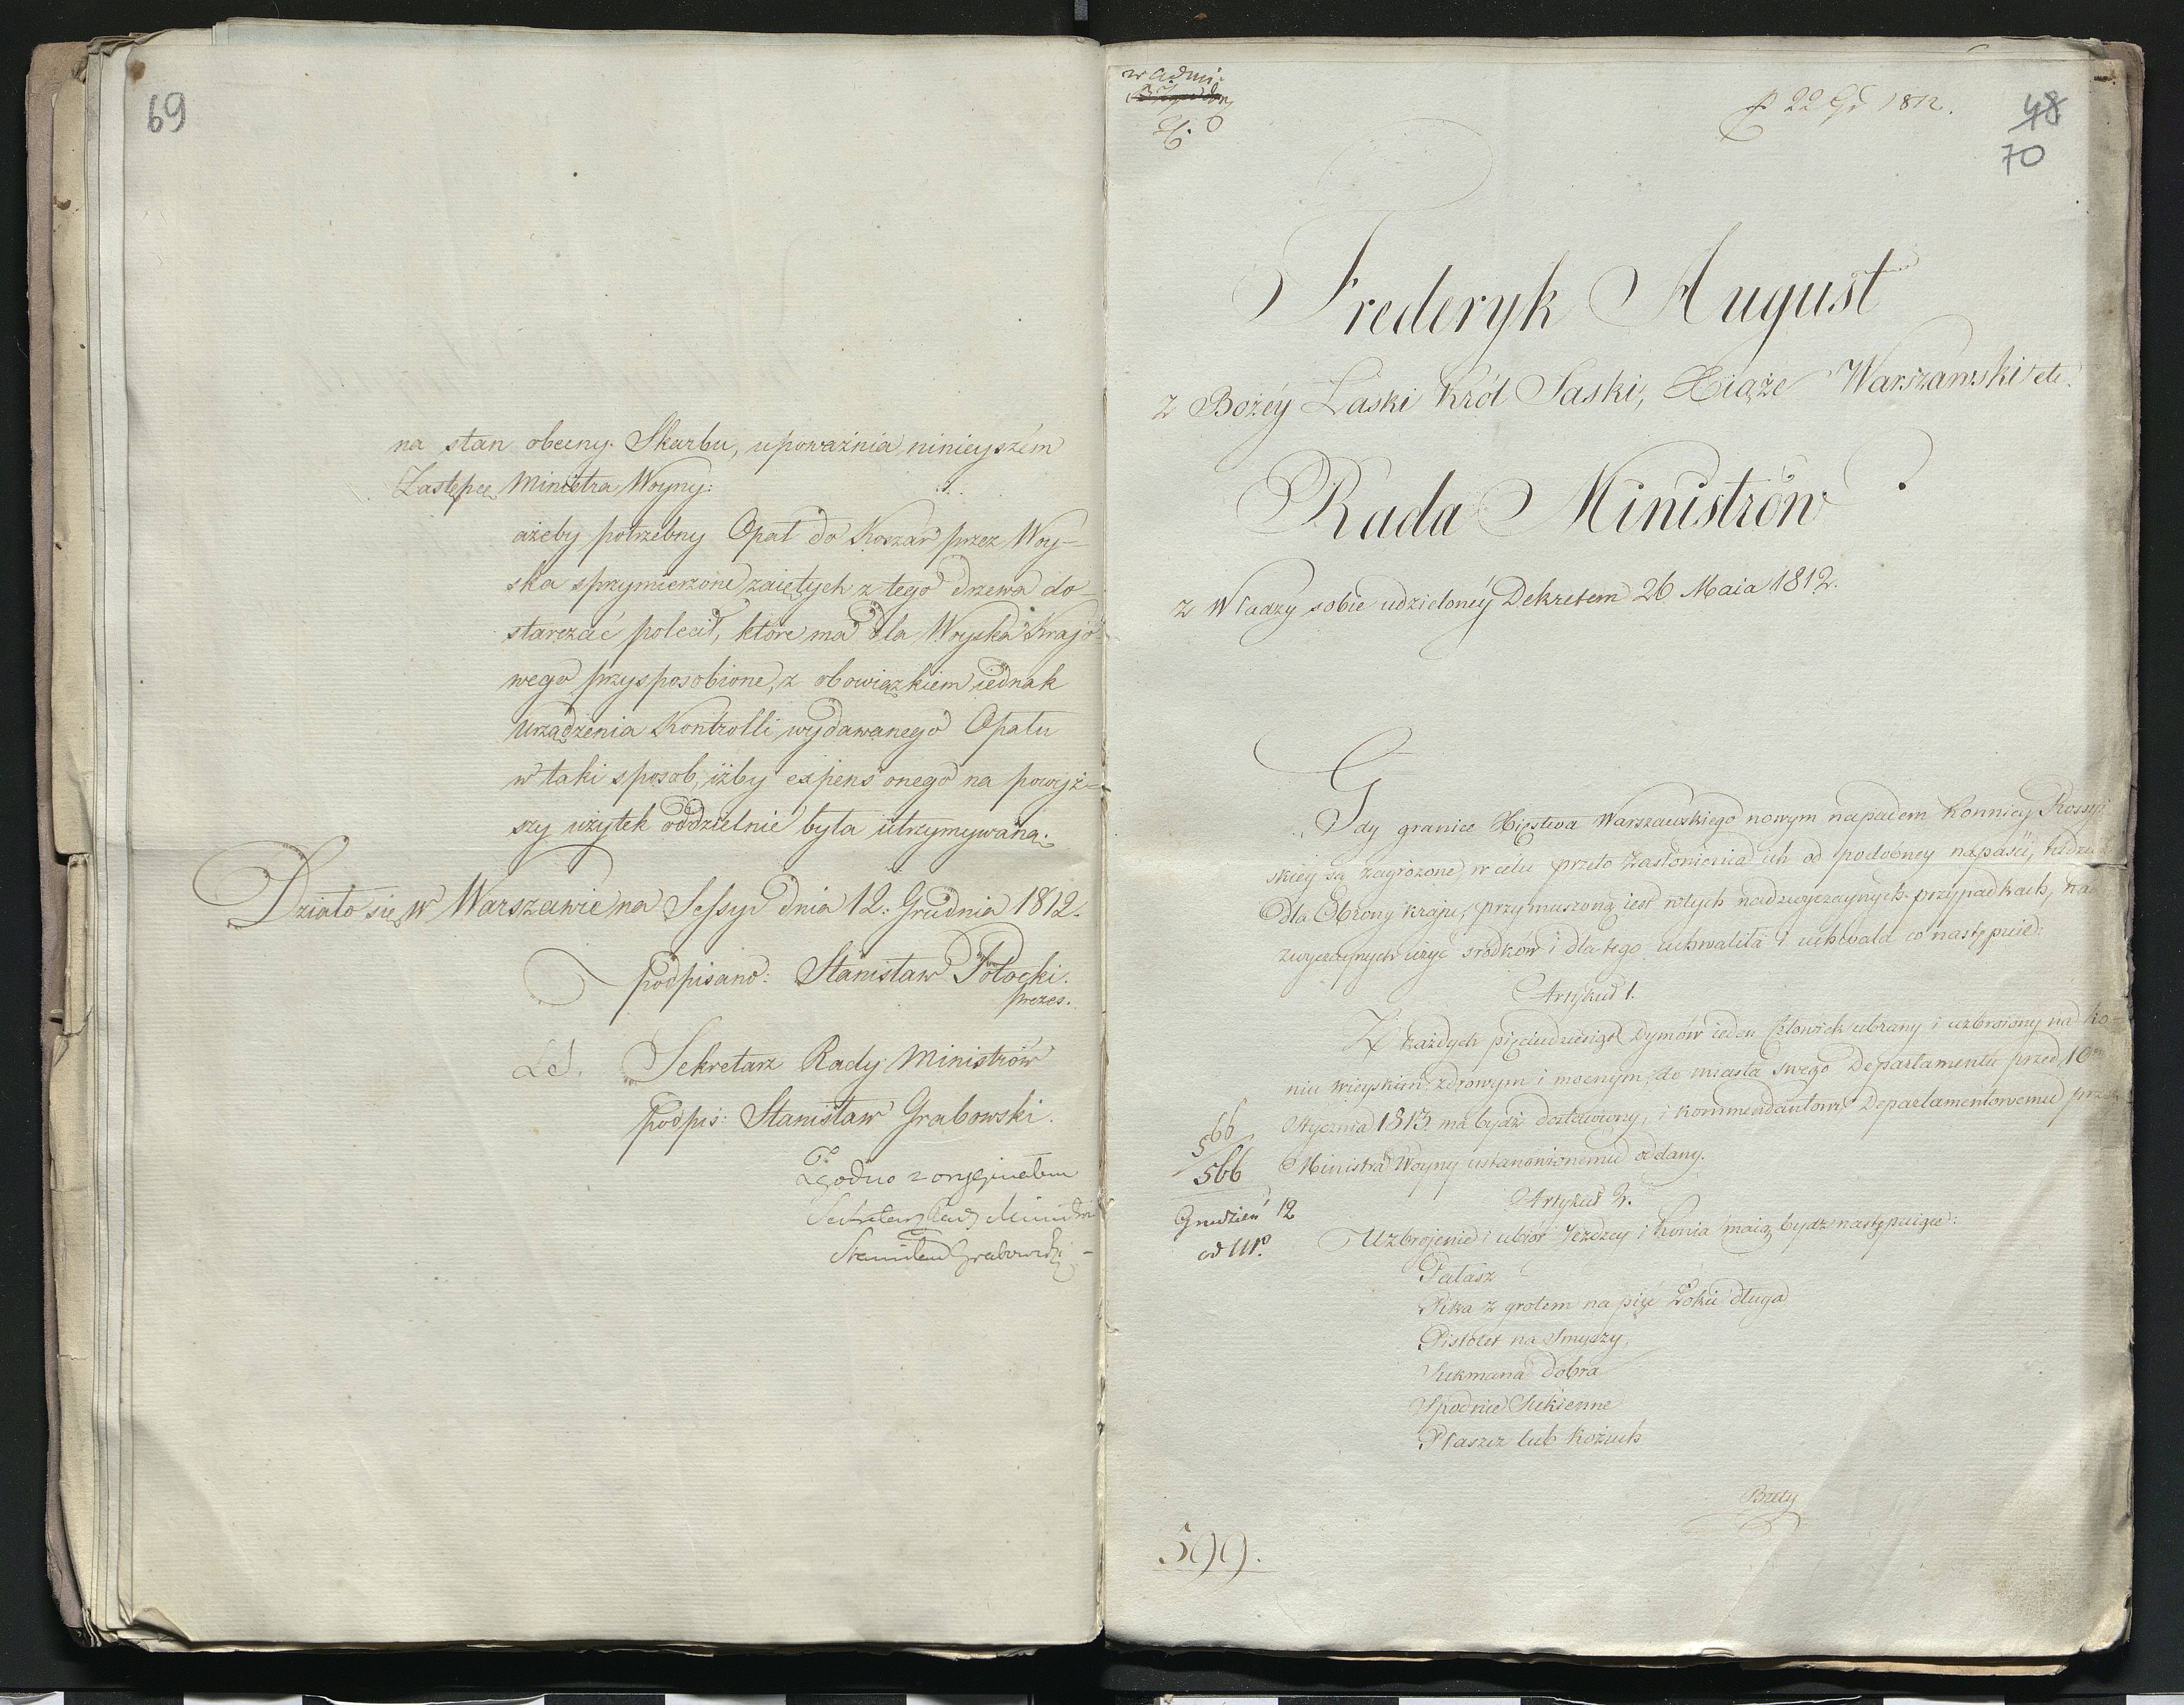 69
na stan obecny Skarbu, upoważnia ninieyszém
Zastępcę Ministra Woyny:
ażeby potrzebny Opał do Koszar przez Woy-
ska sprzymierzone zaiętych z tego drzewa do-
starczać polecił, które ma dla Woyska Krajo-
wego przysposobione, z obowiązkiem iednak
urządzenia Kontrolli wydawanego Opału
w taki sposob, iżby expens onego na powyż-
szy użytek oddzielnie była utrzymywana.
Działo się w Warszawie na Sessyi dnia 12. Grudnia 1812.
podpisano: Stanisław Potocki.
prezes.
LS. Sekretarz Rady Ministrów
podpis: Stanisław Grabowski.
Zgodno z oryginałem
Sekretarz Rady Ministrów
Stanisław Grabowski
w Admi:
22 1812.
48
70
Frederyk August
z Bożéy Łaski Król Saski, Xiąże Warszawski etc.
Rada Ministrów
z Władzy sobie udzielonéy Dekretem 26 Maia 1812.
Gdy granice Xięstwa Warszawskiego nowym napadem Konnicy Rossyi
skiey są zagrożone, w celu przeto zasłonienia ich od podobney napaści,
dla Obrony kraju, przymuszoną iest w tych nadzwyczaynych przypadkach, nad
zwyczaynych użyć srodków i dla tego uchwaliła i uchwala co następuie:
Artykuł 1.
Z każdych pięciudziesiąt Dymów ieden Człowiek ubrany i uzbroiony na ko-
niu wieyskim zdrowym i mocnym, do miasta swego Departamentu przed 10
Stycznia 1813 ma bydź dostawiony, i kommendantowi Departamentowemu przez
Ministra Woyny ustanowionemu oddany.
566
566
Grudzień 12
od 111.
Artykuł 2.
Uzbrojenie i ubiór Jeźdzcy i konia maią bydź następuiące:
Pałasz
Pika z grotem na pięć Łokci długa
Pistolet na Smyczy,
Sukmana dobra
Spodnie Sukienne
Płaszcz lub kożuch
Buty
599.